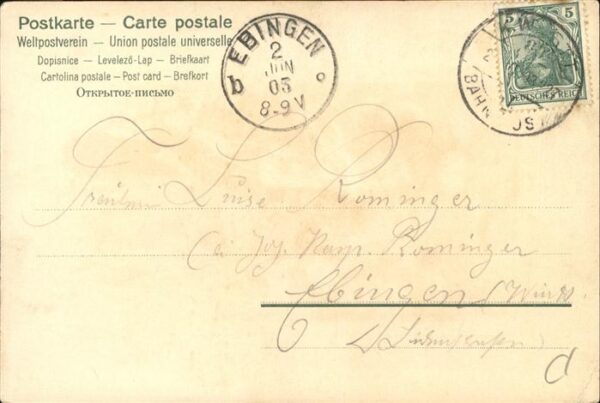 Postkarte — Carte postale
Weltpostverein — Union postale universelle
Dopisnice — Levelező-Lap — Briefkaart
Cartolina postale — Post card — Brefkort
Открытое-письмо
EBINGEN
2
JUN
03
8-9V
b
5 5
DEUTSCHES REICH
BAHN
Fräulein Luise Rominger
bei Joh. Rominger
Ebingen (Württ.
d